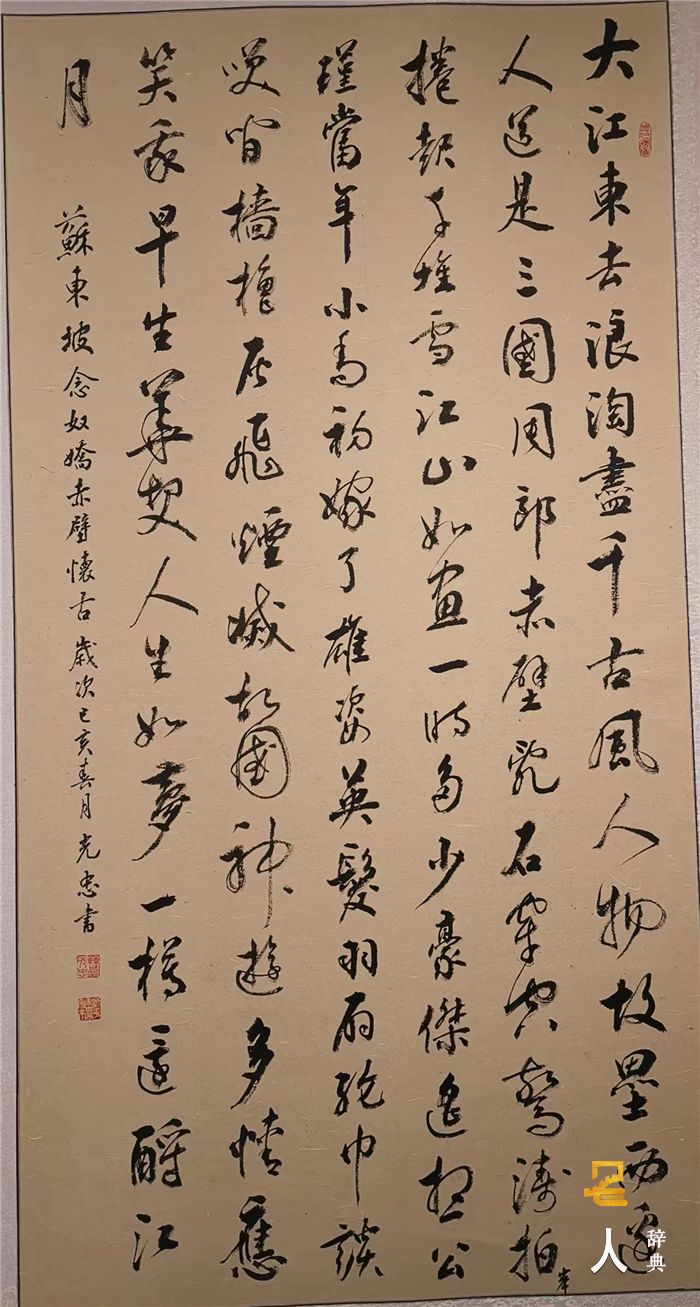 大江東去浪淘盡千古風人物故壘西邊
人道是三國周郎赤壁亂石穿空驚濤拍岸
捲起千堆雪江山如畫一時多少豪傑遙想公
瑾當年小喬初嫁了雄姿英發羽扇綸巾談
咲間檣櫓灰飛煙滅故國神遊多情應
笑我早生華髮人生如夢一樽還酹江
月
蘇東坡念奴嬌赤壁懷古歲次己亥春月光忠書
人
辞典